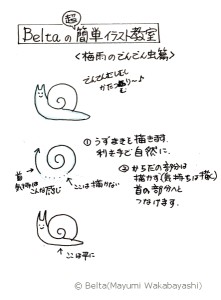 超
Beltaの簡単イラスト教室
<梅雨のでんでん虫篇>
でんでんむしむし
かたつむり〜♪
①うずまきを描きます。
利き手で自然に。
首
気持ちは
こんなかんじ
ここは描かない
②からだの部分は
描かず(気持ちは描く)
首の部分へと
つなげます。
ここは平に
© Belta(Mayumi Wakabayashi)